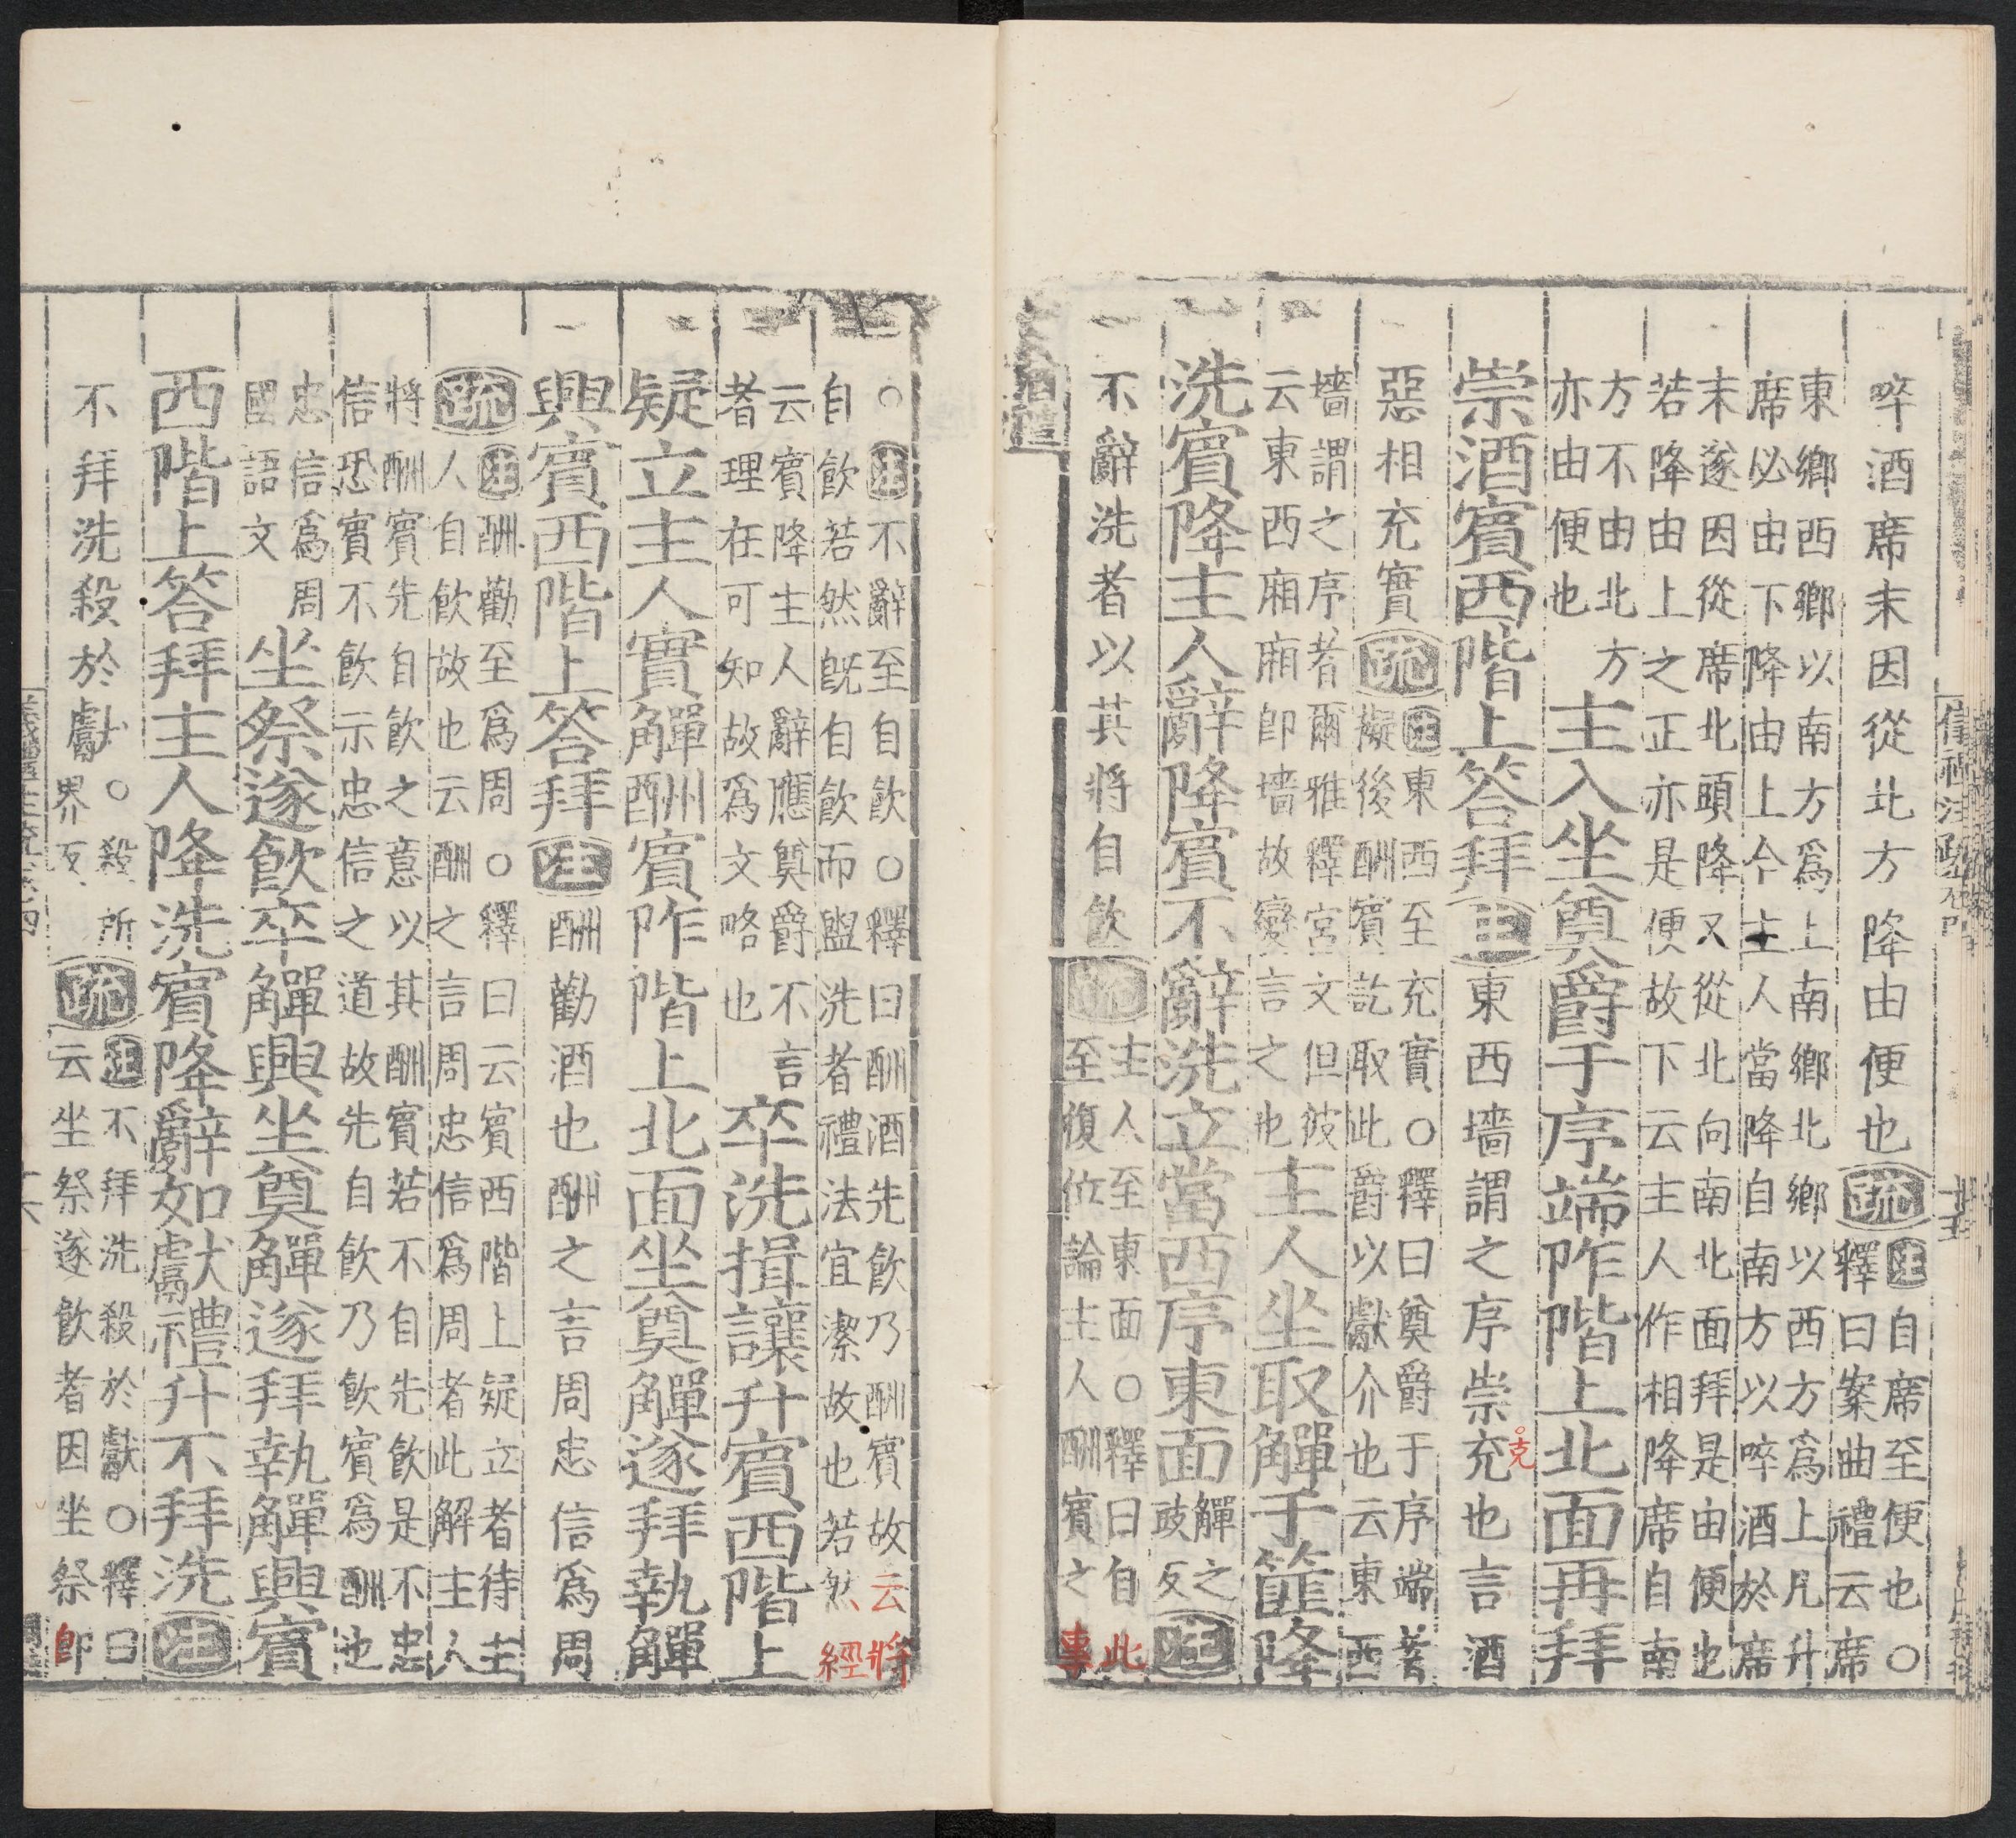 啐酒席末因從北方降由便也疏注自席至便也○
釋曰案曲禮云席
東鄉西鄉以南方爲上南鄉北鄉以西方爲上凡升
席必由下降由上今主人當降自南方以啐酒於席
末遂因從席北頭降又從北向南北面拜是由便也
若降由上之正亦是便故下云主人作相降席自南
方不由北方
亦由便也
主人坐奠爵于序端阼階上北面再拜
崇酒賓西階上荅拜注東西墻謂之序崇充也言酒
克
惡相充實疏注東西至充實○釋曰奠爵于序端者
擬後酬賓訖取此爵以獻介也云東西
墻謂之序者爾雅釋宮文但彼
云東西廂廂卽墻故變言之也
主人坐取觶于篚降
洗賓降主人辭降賓不辭洗立當西序東面觶之
豉反注
不辭洗者以其將自飲疏主人至東面○釋曰自此
至復位論主人酬賓之事
酒禮
○注不辭至自飲○釋曰酬酒先飲乃酬賓故云將
自飲若然旣自飲而盥洗者禮法宜潔故也若然經
云賓降主人辭應奠爵不言
者理在可知故爲文略也
卒洗揖讓升賓西階上
疑立主人實觶酬賓阼階上北面坐奠觶遂拜執觶
興賓西階上荅拜注酬勸酒也酬之言周忠信爲周
疏注酬勸至爲周○釋曰云賓西階上疑立者待主
人自飲故也云酬之言周忠信爲周者此解主人
將酬賓先自飲之意以其酬賓若不自先飲是不忠
信恐賓不飲示忠信之道故先自飲乃飲賓爲酬也
忠信爲周
國語文
坐祭遂飲卒觶興坐奠觶遂拜執觶興賓
西階上荅拜主人降洗賓降辭如獻禮升不拜洗注
不拜洗殺於獻○殺所
界反疏注不拜洗殺於獻○釋曰
云坐祭遂飲者因坐祭卽